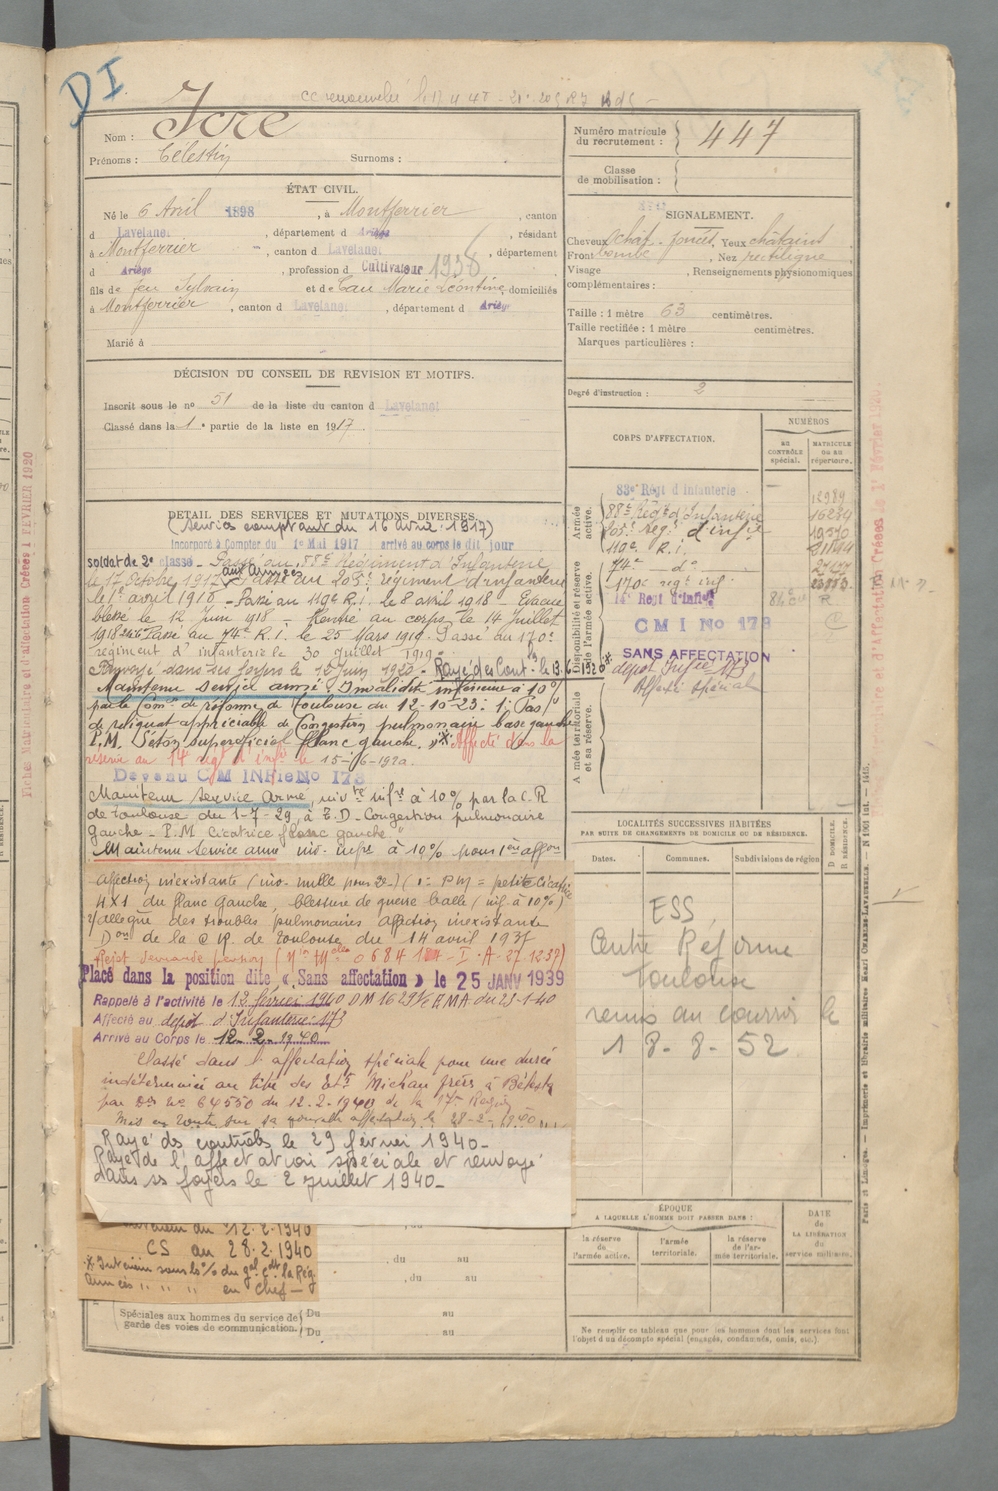 DI
Nom : Icre
Prénoms : Célestin Surnoms :
Numéro matricule du recrutement : 447
Classe de mobilisation :
ÉTAT CIVIL.
Né le 6 Avril 1898, à Montferrier, canton
d Lavelanet, département d Ariège, résidant
à Montferrier, canton d Lavelanet, département
d Ariège, profession d Cultivateur 1938
fils de feu Sylvain et de Eau Marie Léontine, domiciliés
à Montferrier, canton d Lavelanet, département d Ariège
Marié à
SIGNALEMENT.
Cheveux chât. foncés. Yeux châtains
Front bombé, Nez rectiligne
Visage , Renseignements physionomiques
complémentaires :
Taille : 1 mètre 63 centimètres.
Taille rectifiée : 1 mètre centimètres.
Marques particulières :
DÉCISION DU CONSEIL DE REVISION ET MOTIFS.
Inscrit sous le nº 51 de la liste du canton d Lavelanet
Classé dans la 1e partie de la liste en 1917.
Degré d'instruction : 2
CORPS D'AFFECTATION.
NUMÉROS
AU CONTRÔLE spécial.
MATRICULE OU AU répertoire.
Armée active.
83e Régt d'Infanterie
88e Régt d'Infanterie 16234
205e Rég. d'inf.ie
119e R.I.
74e — do
170e regt inf.
Disponibilité et réserve de l'armée active.
14e Régt d'Inf.ie R
C M I No 173
SANS AFFECTATION
dépot Inf.ie 173
Affecté spécial
Armée territoriale et sa réserve.
DETAIL DES SERVICES ET MUTATIONS DIVERSES.
(Services comptant du 16 avril 1917)
incorporé à Compter du 1er Mai 1917 arrivé au corps le dit jour
soldat de 2e classe - Passé au 88e Régiment d'Infanterie
le 17 Octobre 1917 aux armées Passé au 205e régiment d'infanterie
le 1er avril 1918 - Passé au 119e R.I. le 8 avril 1918 - Evacué
blessé le 12 Juin 1918 - Rentré au corps le 14 Juillet
1918 Passé au 74e R.I. le 25 Mars 1919. Passé au 170e
régiment d'infanterie le 30 Juillet 1919.
Renvoyé dans ses foyers le 12 Juin 1920 - Rayé des Cont. le 13.6.1920
Maintenu service armé. Invalidité inférieure à 10%
par la Com. de réforme de Toulouse du 12-10-23 : 1º Pas
de reliquat appréciable de Congestion pulmonaire base gauche
P.M. Séton superficiel flanc gauche. Affecté dans la
réserve au 14e régt d'inf.ie le 15-6-1920
Devenu C M INFie No 173
Maintenu Service Armé, inv.té inf.re à 10% par la C.R
de Toulouse du 1-7-29, à E.D - Congestion pulmonaire
gauche - P.M. Cicatrice flanc gauche"
Maintenu service armé inv. infre à 10% pour 1ère aff.on
affection inexistante (inv. nulle pour 2e) (1º PM = petite cicatrice
4x1 du flanc gauche, blessure de guerre balle (inf. à 10%)
2/allègue des troubles pulmonaires affection inexistante
Don de la C.R. de Toulouse du 14 avril 1937
Rejet demande pension
Placé dans la position dite « Sans affectation » le 25 JANV 1939
Rappelé à l'activité le 12 février 1940 DM 1629 EMA du 23-1-40
Affecté au dépot d'Infanterie 173
Arrivé au Corps le 12. 2. 1940
Classé dans l'affectation spéciale pour une durée
indéterminée au titre des Etts Michau frères à Bélesta
par Don No 64550 du 12.2.1940 de la 17e Région
Mis en route sur sa nouvelle affectation le 28-2-1940
Rayé des contrôles le 29 février 1940-
Rayé de l'affectation spéciale et renvoyé
dans ses foyers le 2 juillet 1940-
du 12.2.1940
CS au 28.2.1940
Intérieur
en Chef
, du au
, du au
Spéciales aux hommes du service de garde des voies de communication. Du au
Du au
LOCALITÉS SUCCESSIVES HABITÉES
PAR SUITE DE CHANGEMENTS DE DOMICILE OU DE RÉSIDENCE.
Dates. Communes. Subdivisions de région
D DOMICILE. R RÉSIDENCE.
ESS,
Centre Réforme
Toulouse
remis au courrier le
18-8-52
ÉPOQUE
A LAQUELLE L'HOMME DOIT PASSER DANS :
la réserve de l'armée active.
l'armée territoriale.
la réserve de l'armée territoriale.
DATE de LA LIBÉRATION du service militaire.
Ne remplir ce tableau que pour les hommes dont les services font
l'objet d'un décompte spécial (engagés, condamnés, omis, etc.).
Paris et Limoges. — Imprimerie et librairie militaires Henri CHARLES-LAVAUZELLE.
Fiche Matriculaire et d'affectation Créées 1 FEVRIER 1920